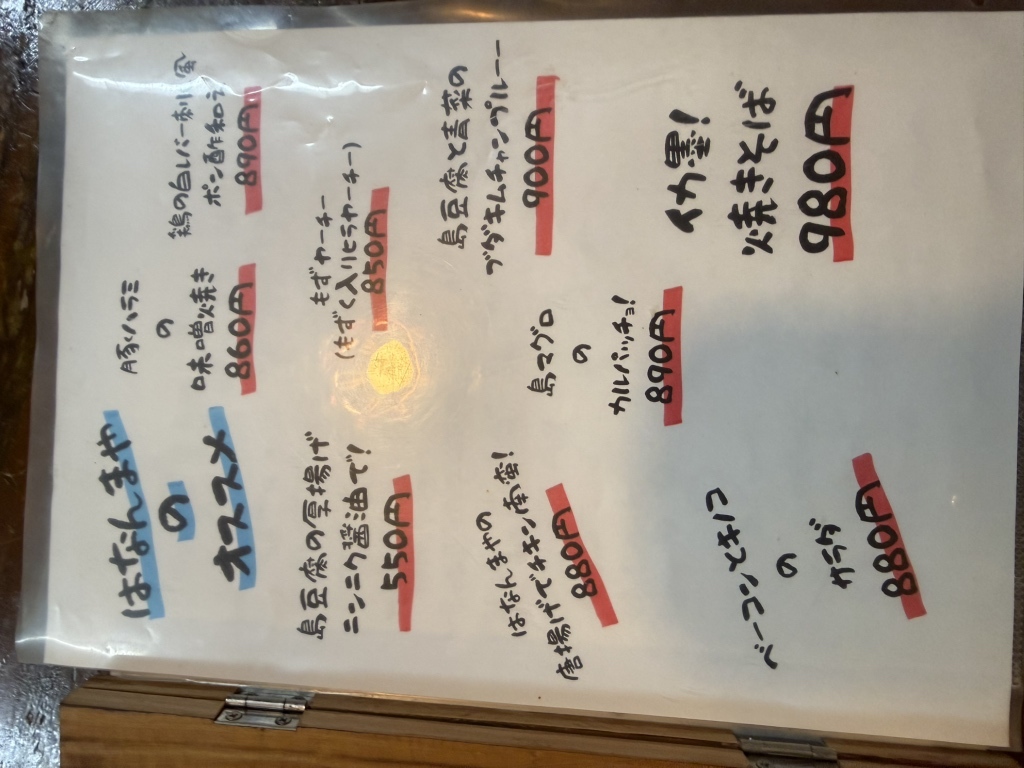 はなんまや
の
オススメ
豚ハラミ
の
味噌焼き
860円
鶏の白レバー刺し風
ポン酢和え
890円
島豆腐の厚揚げ
ニンニク醤油で!
550円
もずヤーチー
(もずく入りヒラヤーチー)
850円
島豆腐と青菜の
プタキムチャンプルー
900円
はなんまやの
唐揚げでチキン南蛮!
880円
島マグロ
の
カルパッチョ!
890円
イカ墨!
焼きそば
980円
ベーコンとキノコ
の
サラダ
880円